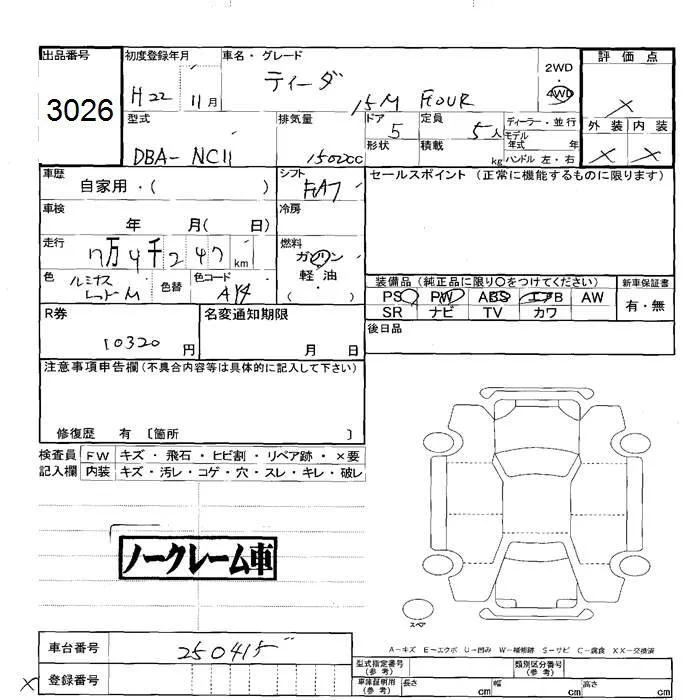 出品番号 初度登録年月 車名・グレード 2WD 評価点
3026 H22 11月 ティーダ 4WD ×
15M FOUR
型式 排気量 ドア 定員 ディーラー・並行 外装 内装
DBA-NC11 1500cc 5 5人 モデル年式 年 × ×
形状 積載 kg ハンドル 左・右
車歴 シフト セールスポイント (正常に機能するものに限ります)
自家用・( ) FAT
車検 冷房
年 月( 日)
走行 燃料
7万4千247km ガソリン
色 ルミナス 色替 色コード 軽油
M AY4 ( )
装備品 (純正品に限り○をつけてください) 新車保証書
PS PW ABS エアB AW 有・無
SR ナビ TV カワ
R券 名変通知期限 後日品
10320円 月 日
注意事項申告欄(不具合内容等は具体的に記入して下さい)
修復歴 有 〔箇所 〕
検査員 FW キズ・飛石・ヒビ割・リペア跡・×要
記入欄 内装 キズ・汚レ・コゲ・穴・スレ・キレ・破レ
ノークレーム車
スペア
A-キズ E-エクボ U-凹み W-補修跡 S-サビ C-腐食 XX-交換済
車台番号 250415
型式指定番号(参考) 類別区分番号(参考)
× 登録番号
車庫証明用(参考) 長さ cm 幅 cm 高さ cm